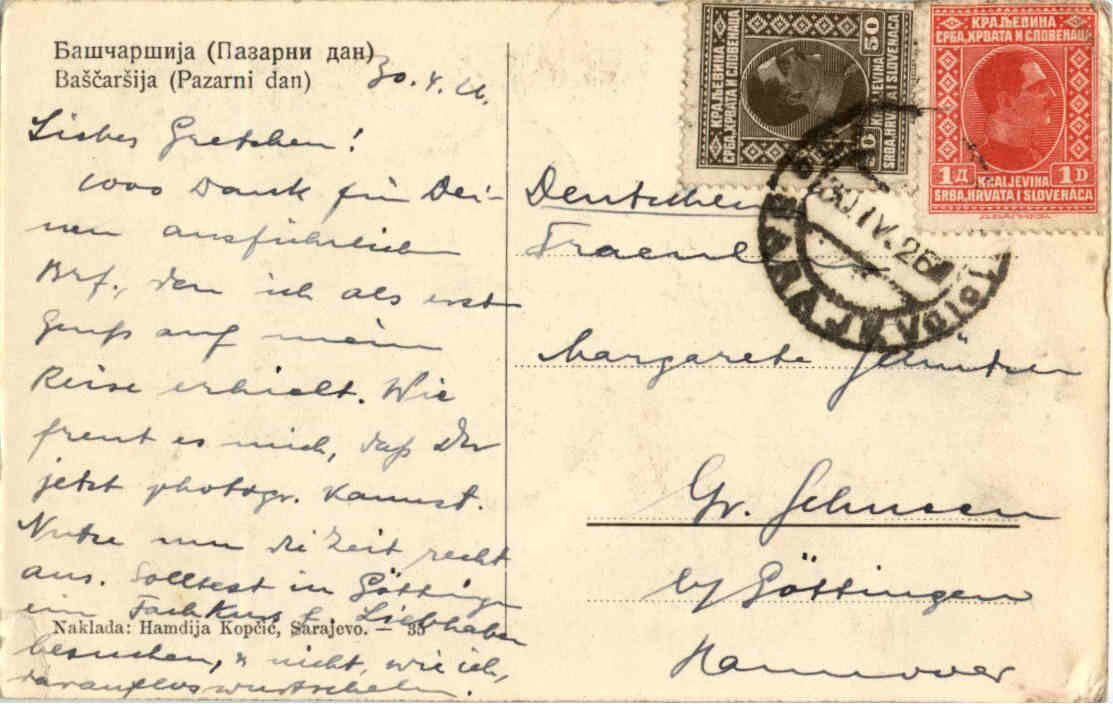 Башчаршија (Пазарни дан)
Baščaršija (Pazarni dan)
30.4.
Liebes Gretchen!
1000 Dank für Dei-
nen ausführlichen
Brf., den ich als erst
Gruß auf mein
Reise erhielt. Wie
freut es mich, daß Du
jetzt photogr. kannst.
Nutze nun die Zeit recht
aus. Solltest in Götting
ein Fachkurs f. Liebhaber
besuchen, u nicht, wie ich,
darauflos wurtscheln.
Naklada: Hamdija Kopčić, Sarajevo. — 35
КРАЉЕВИНА
СРБА, ХРВАТА И СЛОВЕНАЦА
50
50
KRALJEVINA
SRBA, HRVATA I SLOVENACA
КРАЉЕВИНА
СРБА, ХРВАТА И СЛОВЕНАЦА
1Д 1D
KRALJEVINA
SRBA, HRVATA I SLOVENACA
30.IV.26
Deutsches
Fraeulein
Margarete
Gr.
by Göttingen
Hannover